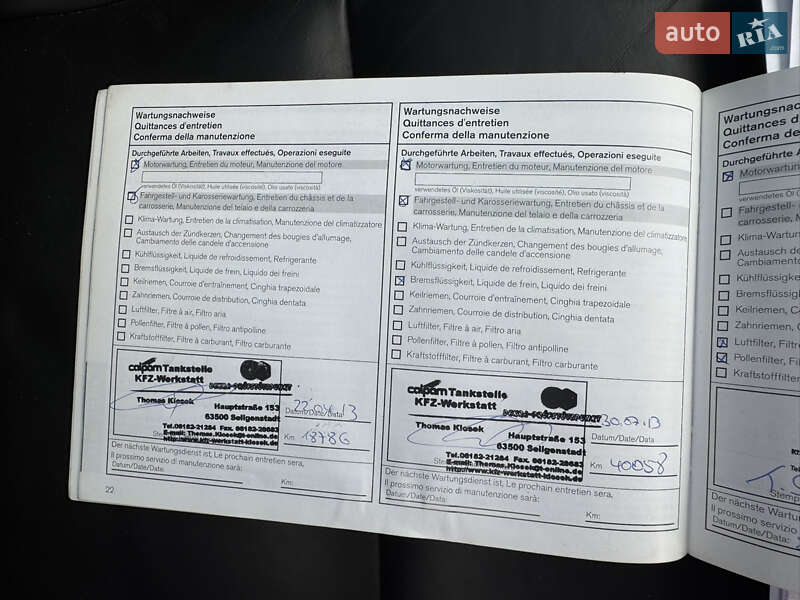 auto RIA
.com
Wartungsnachweise
Quittances d'entretien
Conferma della manutenzione
Durchgeführte Arbeiten, Travaux effectués, Operazioni eseguite
Motorwartung, Entretien du moteur, Manutenzione del motore
verwendetes Öl (Viskosität), Huile utilisée (viscosité), Olio usato (viscosità)
Fahrgestell- und Karosseriewartung, Entretien du châssis et de la
carrosserie, Manutenzione del telaio e della carrozzeria
Klima-Wartung, Entretien de la climatisation, Manutenzione del climatizzatore
Austausch der Zündkerzen, Changement des bougies d'allumage,
Cambiamento delle candele d'accensione
Kühlflüssigkeit, Liquide de refroidissement, Refrigerante
Bremsflüssigkeit, Liquide de frein, Liquido dei freini
Keilriemen, Courroie d'entraînement, Cinghia trapezoidale
Zahnriemen, Courroie de distribution, Cinghia dentata
Luftfilter, Filtre à air, Filtro aria
Pollenfilter, Filtre à pollen, Filtro antipolline
Kraftstofffilter, Filtre à carburant, Filtro carburante
calpam Tankstelle
KFZ-Werkstatt
Thomas Klosek
Hauptstraße 153
63500 Seligenstadt
Tel.06182-21284 Fax. 06182-28683
E-mail: Thomas.Klosek@t-online.de
http://www.kfz-werkstatt-klosek.de
Datum/Date/Data
Km 18786
Der nächste Wartungsdienst ist, Le prochain entretien sera,
Il prossimo servizio di manutenzione sarà:
Datum/Date/Data:
Km:
22
Wartungsnachweise
Quittances d'entretien
Conferma della manutenzione
Durchgeführte Arbeiten, Travaux effectués, Operazioni eseguite
Motorwartung, Entretien du moteur, Manutenzione del motore
verwendetes Öl (Viskosität), Huile utilisée (viscosité), Olio usato (viscosità)
Fahrgestell- und Karosseriewartung, Entretien du châssis et de la
carrosserie, Manutenzione del telaio e della carrozzeria
Klima-Wartung, Entretien de la climatisation, Manutenzione del climatizzatore
Austausch der Zündkerzen, Changement des bougies d'allumage,
Cambiamento delle candele d'accensione
Kühlflüssigkeit, Liquide de refroidissement, Refrigerante
Bremsflüssigkeit, Liquide de frein, Liquido dei freini
Keilriemen, Courroie d'entraînement, Cinghia trapezoidale
Zahnriemen, Courroie de distribution, Cinghia dentata
Luftfilter, Filtre à air, Filtro aria
Pollenfilter, Filtre à pollen, Filtro antipolline
Kraftstofffilter, Filtre à carburant, Filtro carburante
calpam Tankstelle
KFZ-Werkstatt
Thomas Klosek
Hauptstraße 153
63500 Seligenstadt
Tel.06182-21284 Fax. 06182-28683
E-mail: Thomas.Klosek@t-online.de
http://www.kfz-werkstatt-klosek.de
30.07.13
Datum/Date/Data
Km 40058
Der nächste Wartungsdienst ist, Le prochain entretien sera,
Il prossimo servizio di manutenzione sarà:
Datum/Date/Data:
Km:
Wartungsnachweise
Quittances d'entretien
Conferma della manu
Durchgeführte Arbeiten, T
Motorwartung
verwendetes Öl
Fahrgestell-
carrosserie,
Klima-Wartung
Austausch
Cambiamento
Kühlflüssigkeit
Bremsflüssig
Keilriemen,
Zahnriemen,
Luftfilter, F
Pollenfilter,
Kraftstofffilter
Stemp
Der nächste Wartung
Il prossimo servizio
Datum/Date/Data: